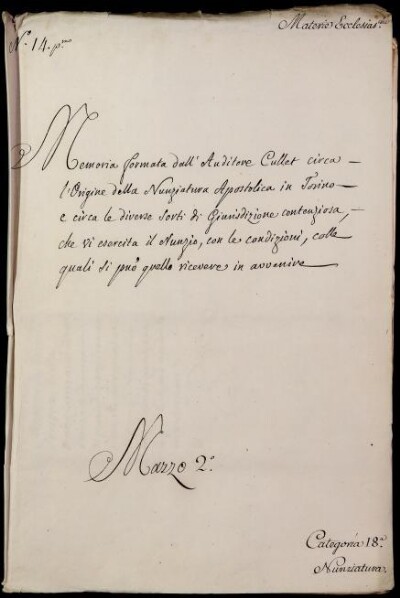 Materie Ecclesias.e
N.o 14. p.mo
Memoria formata dall'Auditore Cullet circa
l'Origine della Nunziatura Apostolica in Torino
e circa le diverse Sorti di Giurisdizione contenziosa,
che vi esercita il Nunzio, con le condizioni, colle
quali si può quello ricevere in avvenire
Mazzo 2.o
Categoria 18.a
Nunziatura.